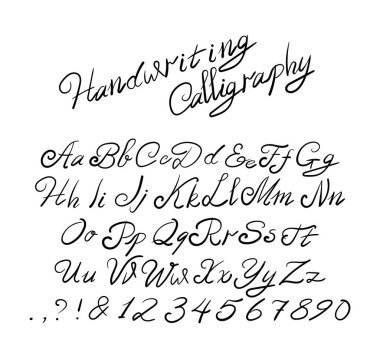 Handwriting
Calligraphy
Aa Bb Cc Dd Ee Ff Gg
Hh Ii Jj Kk Ll Mm Nn
Oo Pp Qq Rr Ss Tt
Uu Vv Ww Xx Yy Zz
.,?!&1234567890